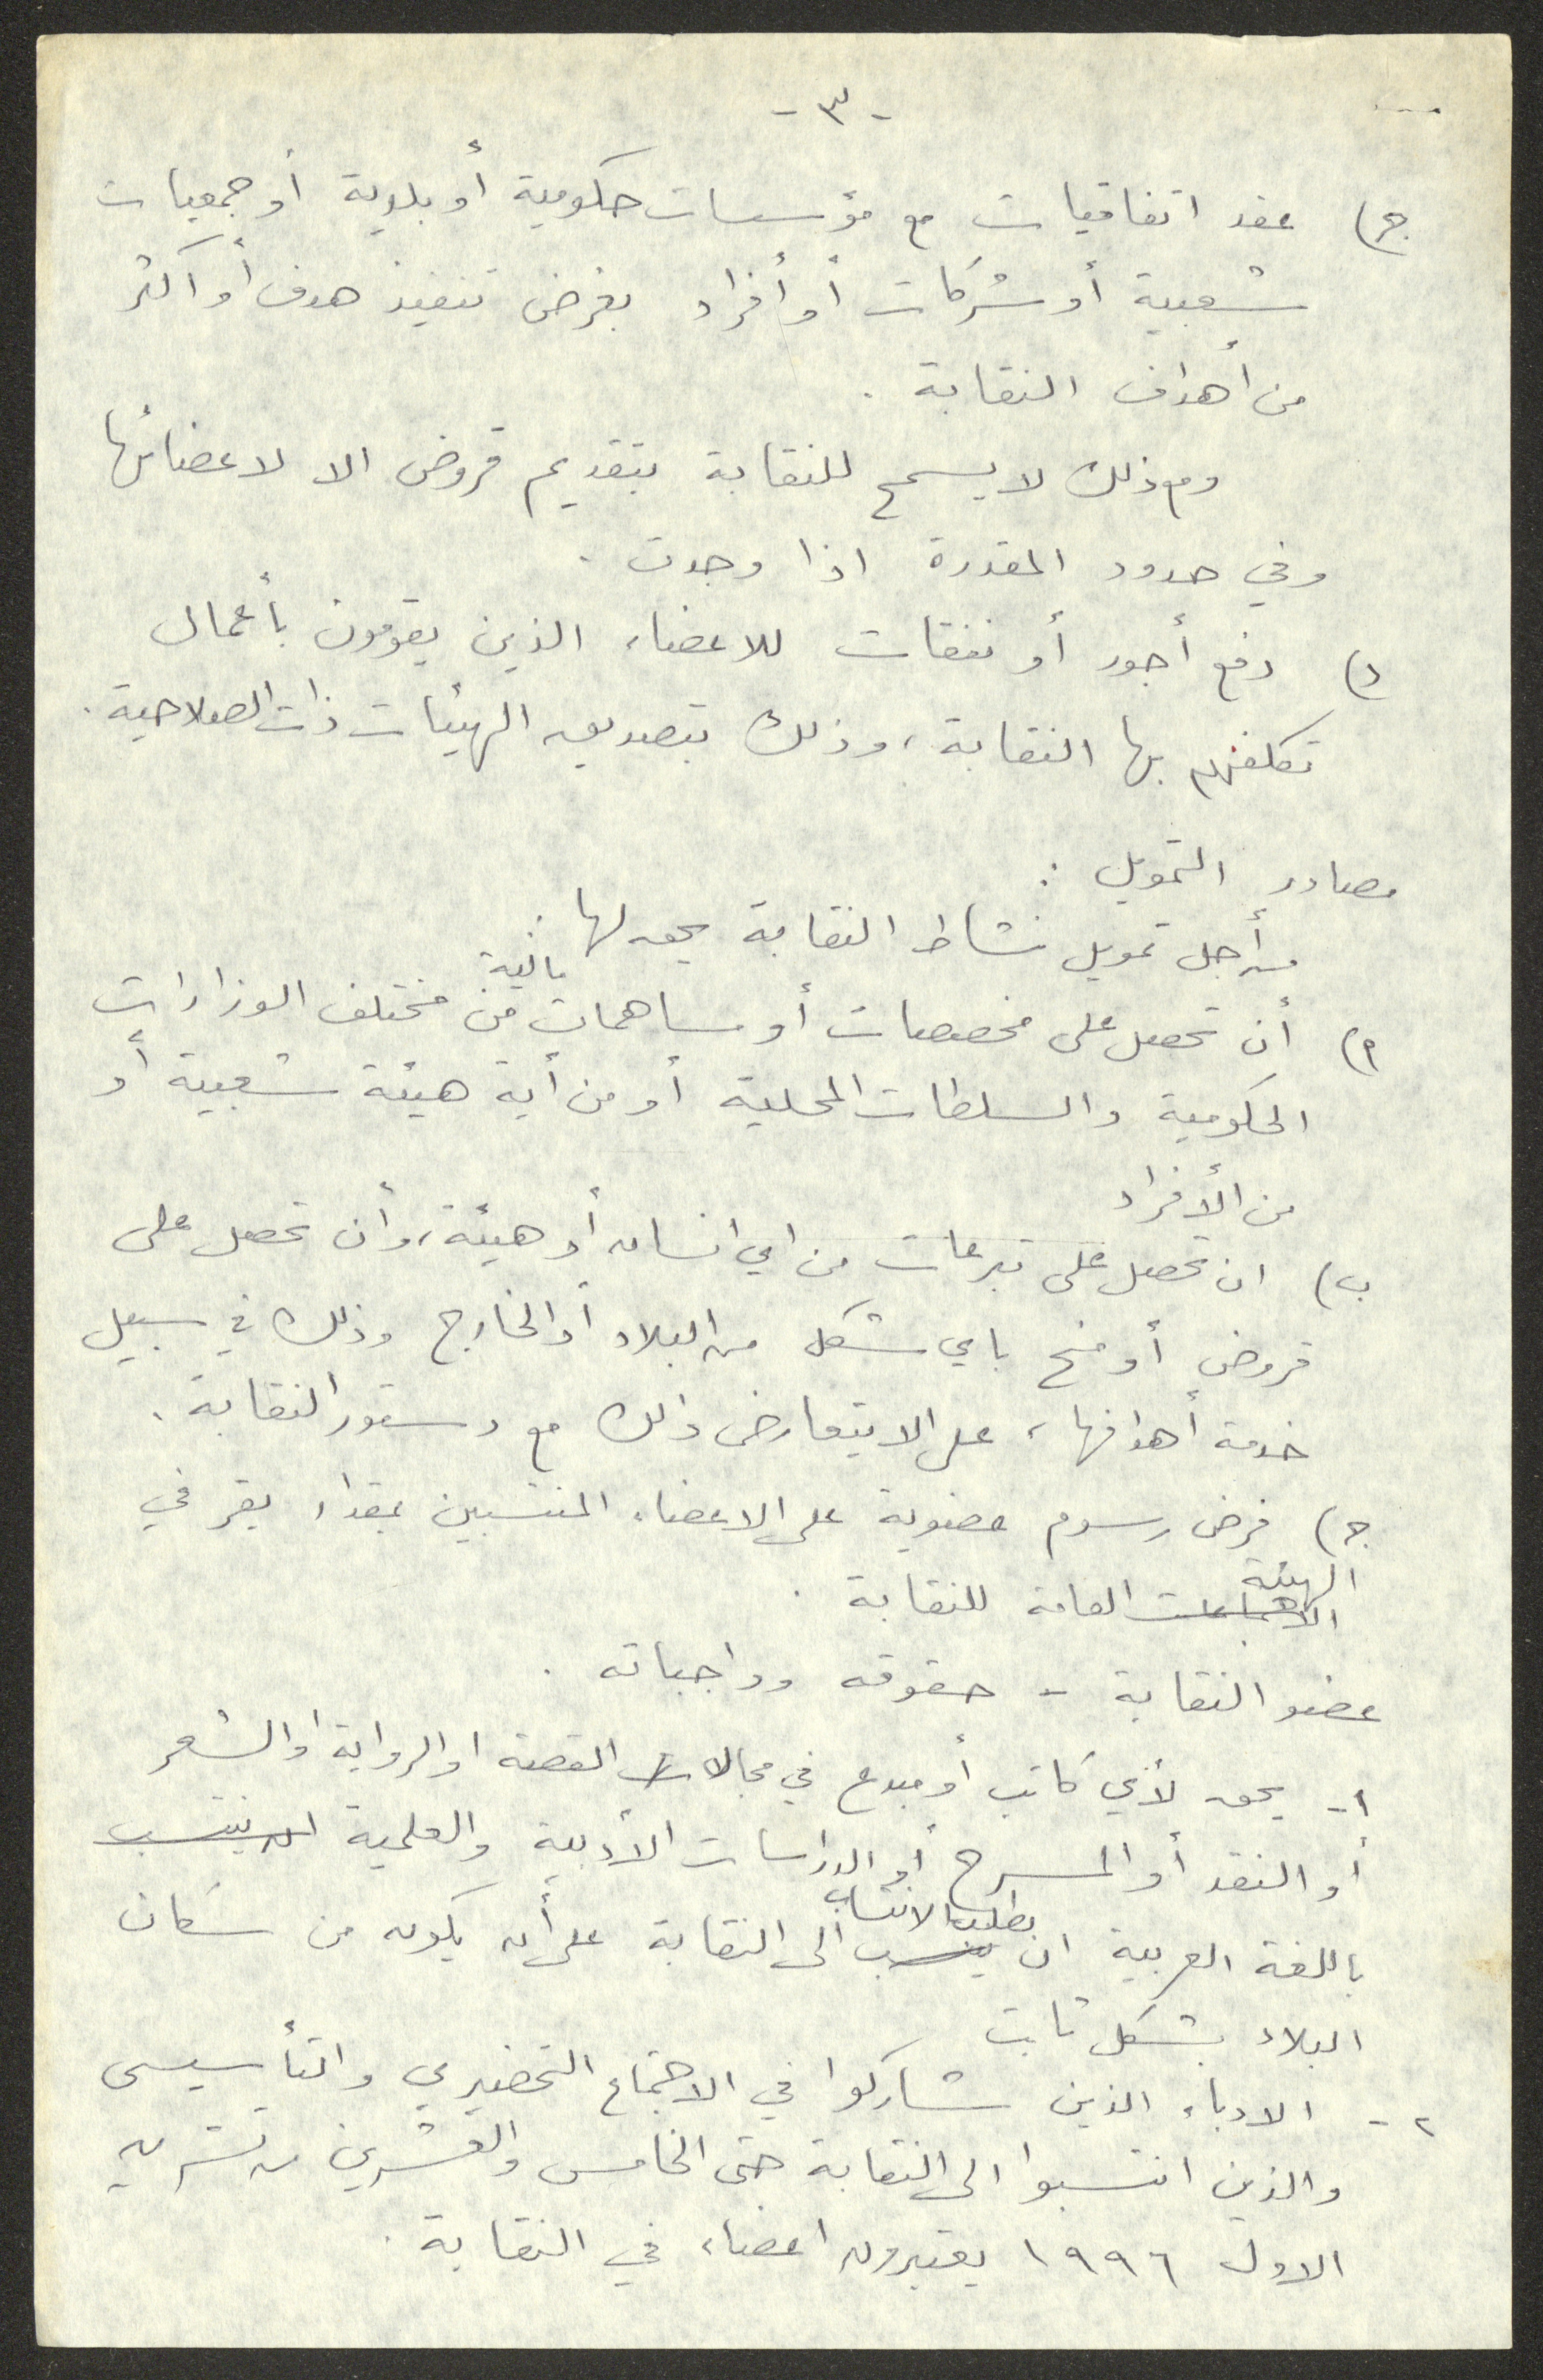 -٣-
ج) عقد اتفاقيات مع مؤسسات حكومية أو بلدية أو جمعيات
شعبية أو شركات أو أفراد بغرض تنفيذ هدف أو اكثر
من أهداف النقابة .
ومع ذلك لا يسمح للنقابة بتقديم قروض الا لاعضائها
وفي حدود المقدرة اذا وجدت .
د) دفع أجور أو نفقات للاعضاء الذين يقومون بأعمال
تكلفهم بها النقابة، وذلك بتصديق الهيئات ذات الصلاحية .
مصادر التمويل :
من أجل تمويل نشاط النقابة يحق لها :
مالية
أ) أن تحصل على مخصصات أو مساهمات من مختلف الوزارات
الحكومية والسلطات المحلية أو من أية هيئة شعبية أو
من الأفراد
ب) ان تحصل على تبرعات من اي انسان أو هيئة، وأن تحصل على
قروض أو منح باي شكل من البلاد أو الخارج وذلك في سبيل
خدمة أهدافها، على الا يتعارض ذلك مع دستور النقابة .
ج) فرض رسوم عضوية على الاعضاء المنتسبين بمقدار يقر في
الهيئة
الاجتماعات العامة للنقابة .
عضو النقابة - حقوقه وواجباته .
١- يحق لأي كاتب أو مبدع في مجالات القصة او الرواية او الشعر
أو النقد أو المسرح أو الدراسات الأدبية والعلمية ان ينتسب
بطلب الانتساب
باللغة العربية ان ينتسب الى النقابة على أن يكون من سكان
البلاد بشكل ثابت
٢- الادباء الذين شاركوا في الاجتماع التحضيري والتأسيسي
والذين انتسبوا الى النقابة حتى الخامس والعشرين من تشرين
الاول ١٩٩٦ يعتبرون اعضاء في النقابة .